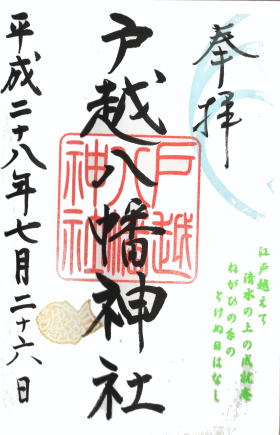 奉拝
江戸越えて
清水の上の成就庵
ねがひの糸の
とけぬ日はなし
戸越八幡神社
戸越
八幡
神社
平成二十八年七月二十六日